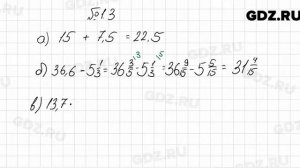 GDZ.RU
№13
а) 15 + 7,5 = 22,5
б) 36,6 - 5 1/3 = 36 3/5 - 5 1/3 = 36 9/15 - 5 5/15 = 31 4/15
в) 13,7 ·
GDZ.RU